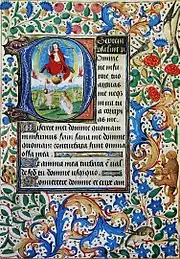 Domine
ne in fu
rore tuo
arguas
me neqz
in ira tu
a corripi
as me.
Miserere mei domine quoniam
infirmus sum sana me domine
quoniam conturbata sunt omnia
ossa mea
Et anima mea turbata est val
de sed tu domine usquequo
Convertere domine et eripe